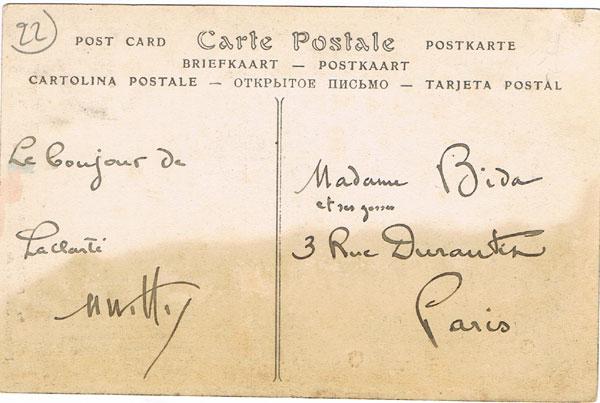 22
POST CARD Carte Postale POSTKARTE
BRIEFKAART — POSTKAART
CARTOLINA POSTALE — ОТКРЫТОЕ ПИСЬМО — TARJETA POSTAL
Le bonjour de
Laclarté
Madame Bida
et ses gosses
3 Rue Durantin
Paris